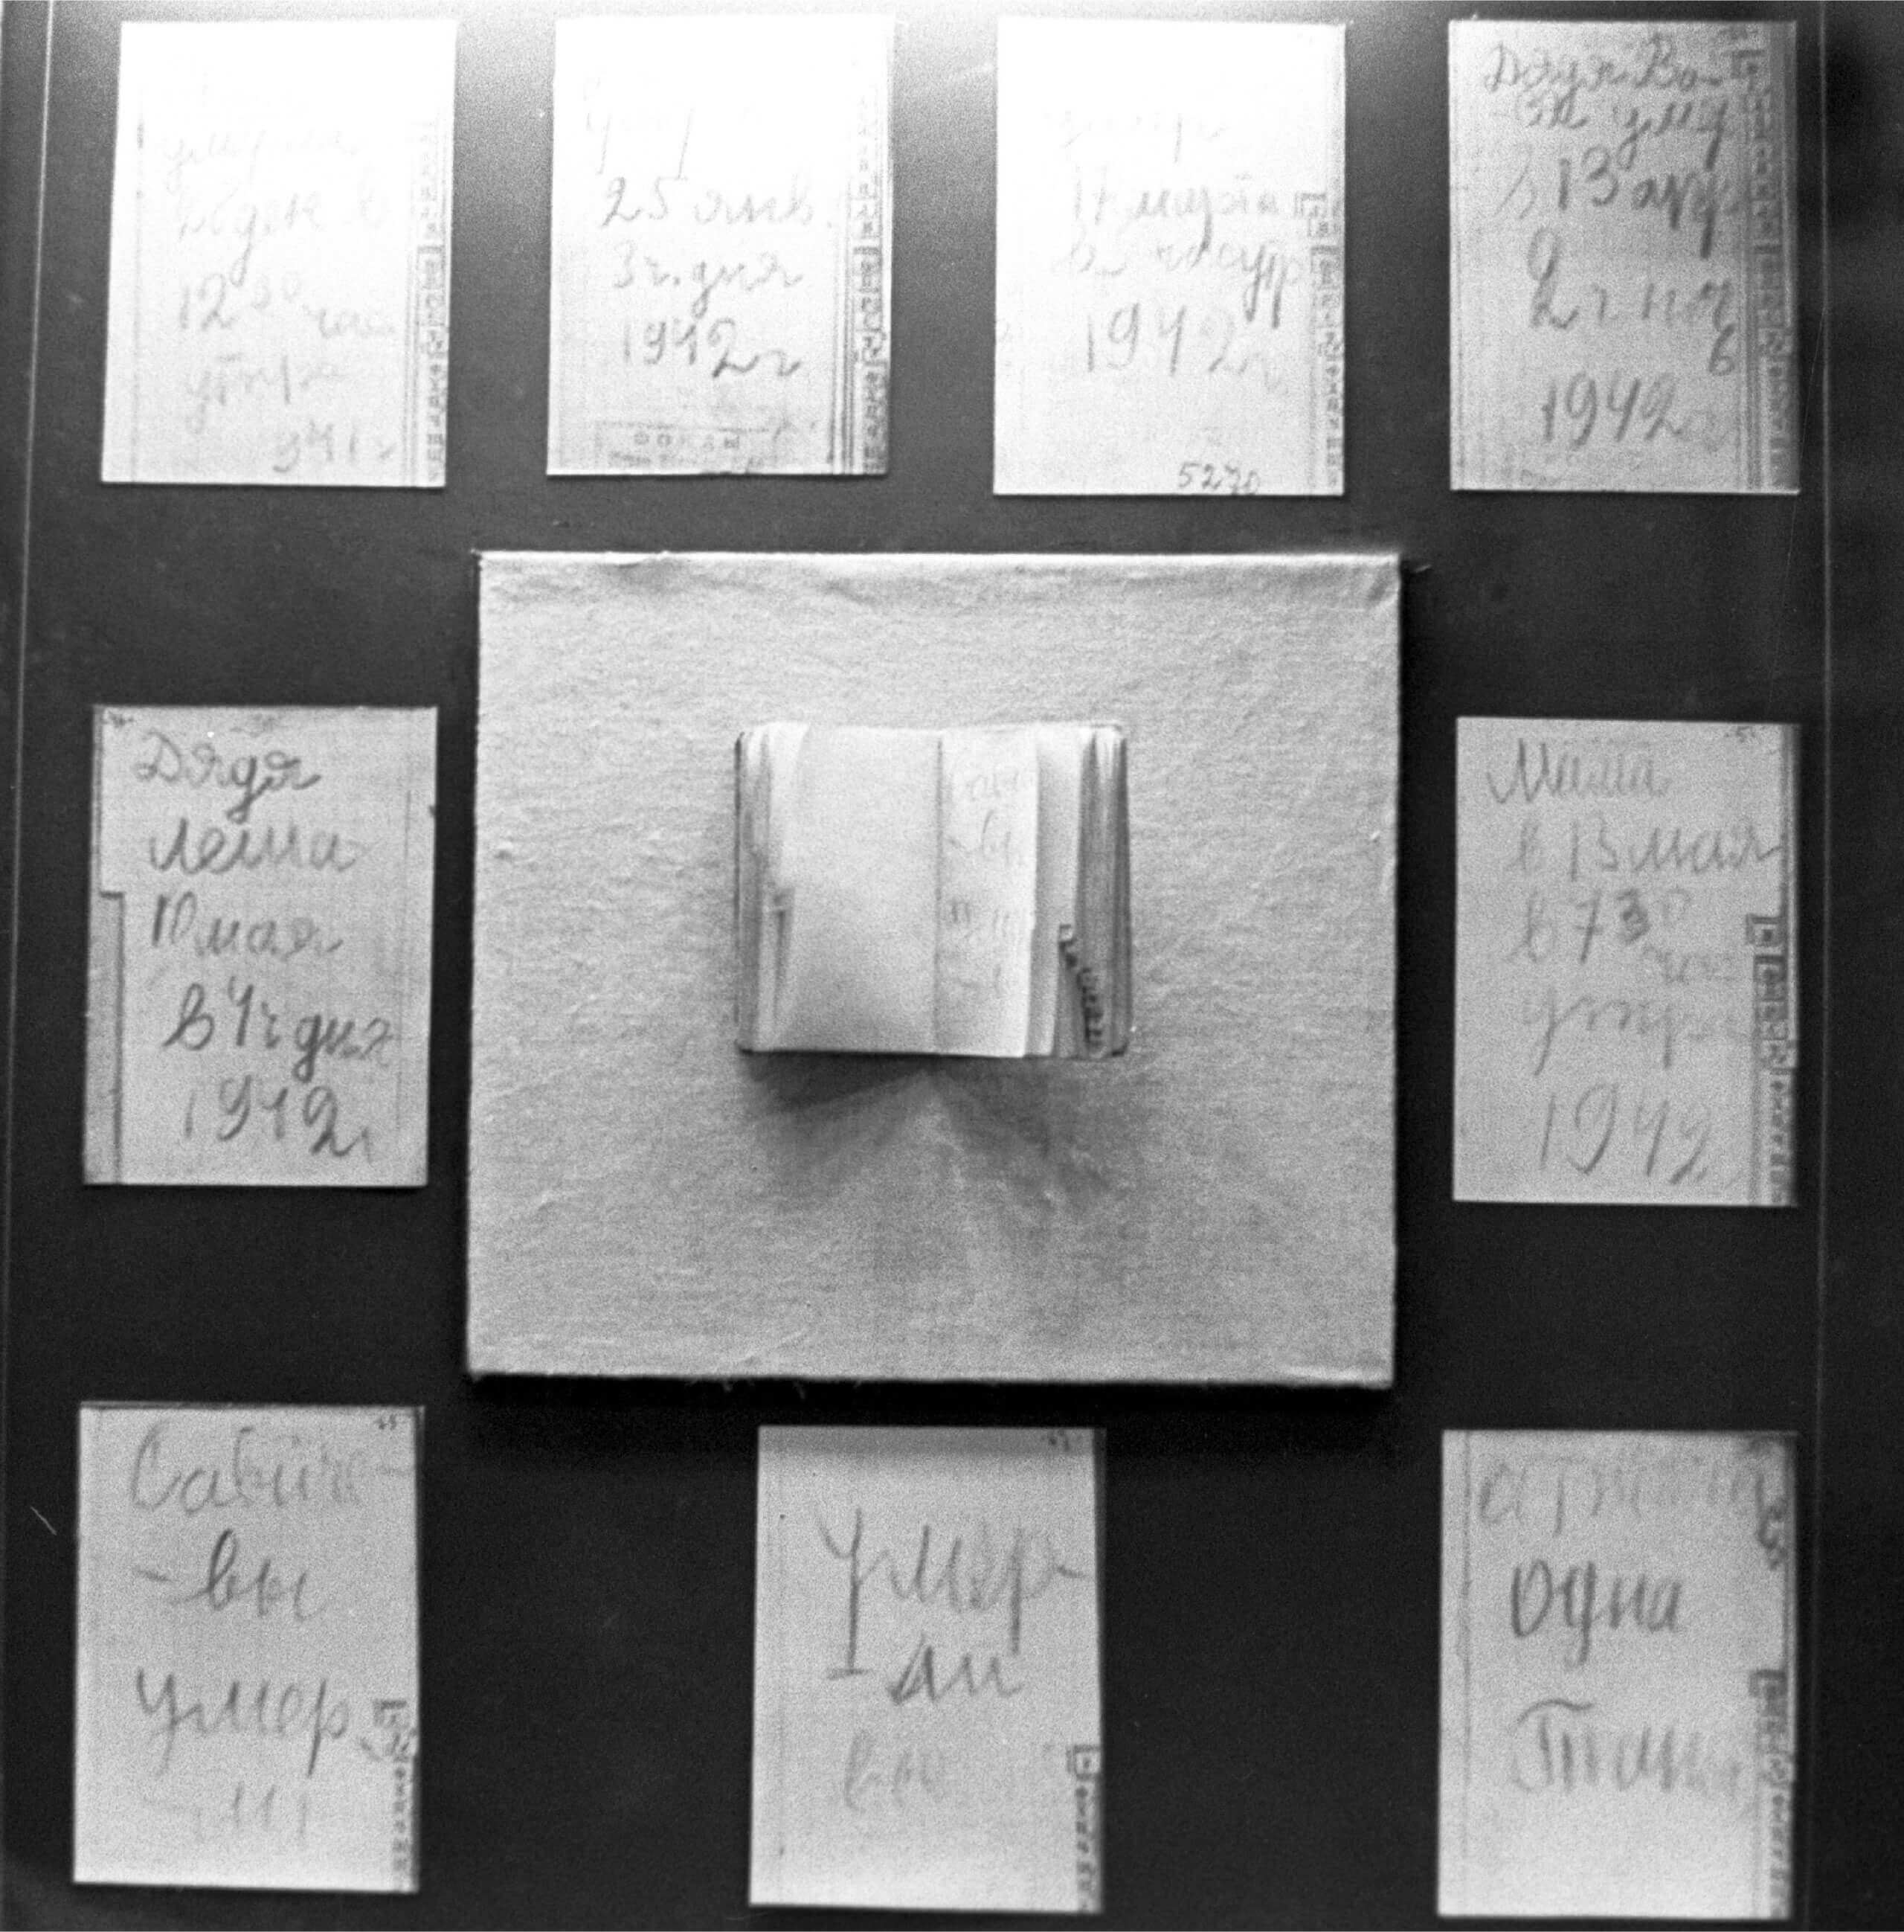 28 дек в
12 30 час
утра
941 г
25 янв.
3 ч. дня
1942 г
17 марта
в 5 час утр
1942 г
5270
Дядя Ва-
-ся умер
в 13 апр
2 ч ноч
1942 г
Дядя
Леша
10 мая
в 4 ч дня
1942 г
Мама
в 13 мая
в 7 30
час
утра
1942
Савиче-
-вы
умер
-ли
Умер-
-ли
все
одна
Таня